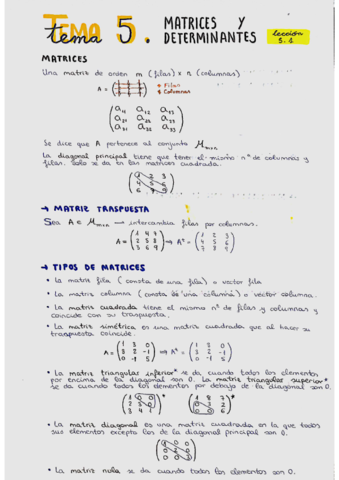 TEMA 5. MATRICES Y
tema DETERMINANTES
lección 5.1
MATRICES
Una matriz de orden m (filas) x n (columnas)
A = Filas
Columnas
a11 a12 a13
a21 a22 a23
a31 a32 a33
Se dice que A pertenece al conjunto Mmxn
La diagonal principal tiene que tener el mismo nº de columnas y
filas. Solo se da en las matrices cuadrada.
→ MATRIZ TRASPUESTA
Sea A ∈ Mmxn → intercambia filas por columnas.
A = ( 1 4 7
2 5 8
3 6 9 ) → Aᵗ = ( 1 2 3
4 5 6
7 8 9 )
→ TIPOS DE MATRICES
• La matriz fila ( consta de una fila ) o vector fila
• La matriz columna ( consta de una columna ) o vector columna.
• La matriz cuadrada tiene el mismo nº de filas y columnas y
coincide con su traspuesta.
• La matriz simétrica es una matriz cuadrada que al hacer su
traspuesta coincide.
A = ( 1 3 0
3 2 -1
0 -1 5 ) → Aᵗ = ( 1 3 0
3 2 -1
0 -1 5 )
• La matriz triangular inferior* se da cuando todos los elementos
por encima de la diagonal son 0. La matriz triangular superior*
se da cuando todos los elementos por debajo de la diagonal son 0.
• La matriz diagonal es una matriz cuadrada en la que todos
sus elementos excepto los de la diagonal principal son 0.
• La matriz nula se da cuando todos los elementos son 0.